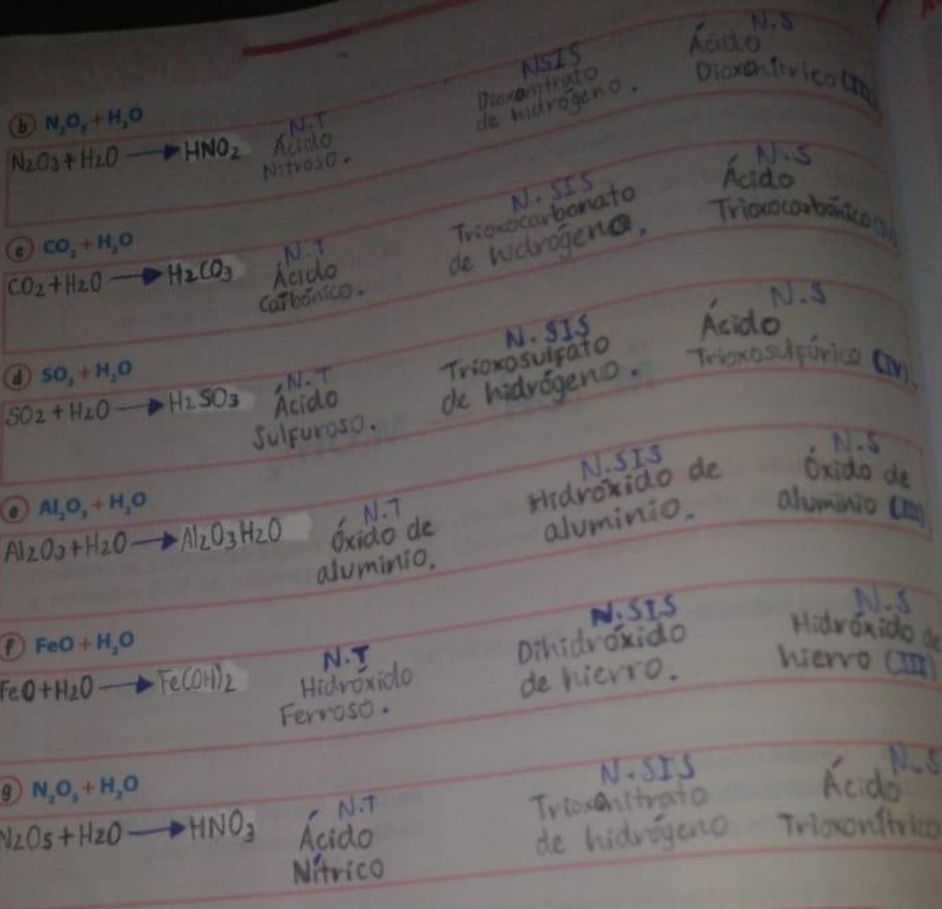 b N₂O₃ + H₂O
N2O3 + H2O → HNO2
N.T
Ácido
Nitroso.
NSIS
Dioxonitrato
de hidrógeno.
N.S
Ácido
Dioxonítrico (III)
c CO₂ + H₂O
CO2 + H2O → H2CO3
N.T
Ácido
Carbónico.
N.SIS
Trioxocarbonato
de hidrógeno.
N.S
Ácido
Trioxocarbónico
d SO₂ + H₂O
SO2 + H2O → H2SO3
N.T
Ácido
Sulfuroso.
N.SIS
Trioxosulfato
de hidrógeno.
N.S
Ácido
Trioxosulfúrico (IV).
e Al₂O₃ + H₂O
Al2O3 + H2O → Al2O3H2O
N.T
Óxido de
aluminio.
N.SIS
Hidróxido de
aluminio.
N.S
Óxido de
aluminio (III)
f FeO + H₂O
FeO + H2O → Fe(OH)2
N.T
Hidróxido
Ferroso.
N.SIS
Dihidróxido
de hierro.
N.S
Hidróxido de
hierro (III)
g N₂O₅ + H₂O
N2O5 + H2O → HNO3
N.T
Ácido
Nítrico
N.SIS
Trioxonitrato
de hidrógeno
N.S
Ácido
Trioxonítrico